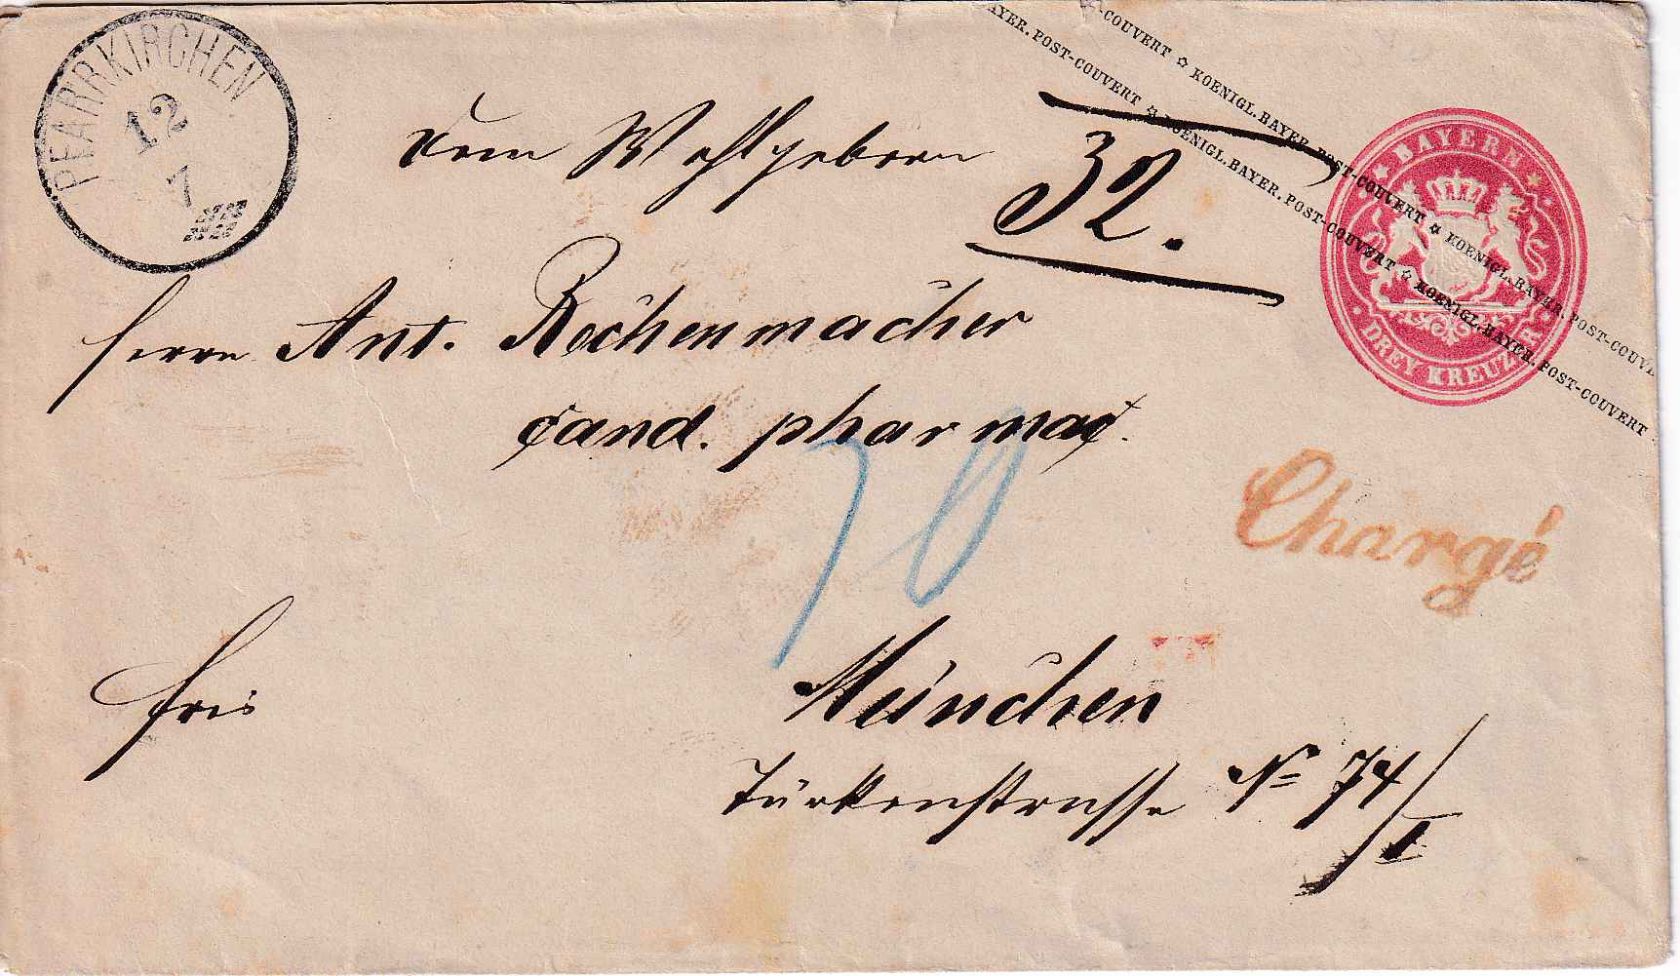 PFARRKIRCHEN
12
7
COUVERT ✩ KOENIGL. BAYER. POST-COUVERT ✩ KOENIGL. BAYER. POST-COUVE
AYER. POST-COUVERT ✩ KOENIGL. BAYER. POST-COUVERT ✩ KOENIGL. BAYER. POST-COUVERT
BAYERN
DREY KREUZER
32.
Wohlgeboren
Herrn Ant. Rechenmacher
cand. pharmac.
Chargé
München
Türkenstrasse No 74/I